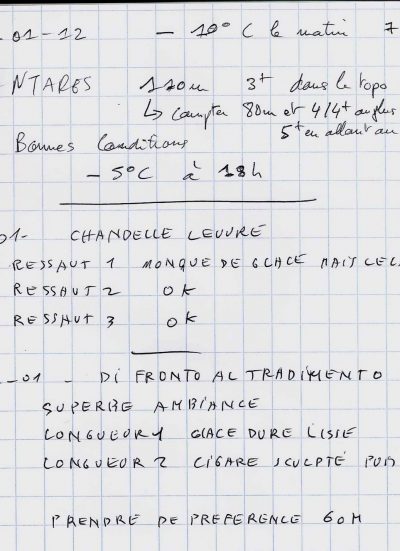 -01-12 - 10° C le matin 7
NTARES 110m 3+ dans le topo
↳ compter 80m et 4/4+ au plus
5+ en allant au
Bonnes Conditions
- 5°C à 18h
01- CHANDELLE LEUVRE
RESSAUT 1 MONQUE DE GLACE MAIS CEL
RESSAUT 2 OK
RESSAUT 3 OK
-01 - DI FRONTO AL TRADIMENTO
SUPERBE AMBIANCE
LONGUEUR 1 GLACE DURE LISSE
LONGUEUR 2 CIGARE SCULPTÉ
PRENDRE DE PREFERENCE 60M